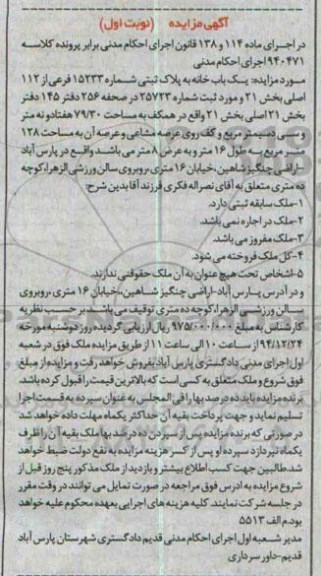 آگهی مزایده (نوبت اول)
در اجرای ماده ۱۱۴ و ۱۳۸ قانون اجرای احکام مدنی برابر پرونده کلاسه
۹۴۰۴۷۱ اجرای احکام مدنی
مورد مزایده: یک باب خانه به پلاک ثبتی شماره ۱۵۲۳۳ فرعی از ۱۱۲
اصلی بخش ۲۱ و مورد ثبت شماره ۲۵۷۲۳ در صفحه ۲۵۶ دفتر ۱۴۵ دفتر
بخش ۲۱ اصلی بخش ۲۱ واقع در همکف به مساحت ۷۹/۳۰ هفتادونه متر
و سی دسیمتر مربع و کف روی عرصه مشاعی و عرصه آن به مساحت ۱۲۸
متر مربع به طول ۱۶ متر و به عرض ۸ متر می باشد. واقع در پارس آباد
اراضی چنگیز شاهین، خیابان ۱۶ متری، روبروی سالن ورزشی الزهرا، کوچه
ده متری متعلق به آقای نصراله فکری فرزند آقا بدین شرح:
۱-ملک سابقه ثبتی دارد.
۲-ملک در اجاره نمی باشد.
۳-ملک مفروز می باشد.
۴-کل ملک فروخته می شود.
۵-اشخاص تحت هیچ عنوان به آن ملک حقوقی ندارند.
و در آدرس پارس آباد-اراضی چنگیز شاهین-خیابان ۱۶ متری، روبروی
سالن ورزشی الزهرا، کوچه ده متری توقیف می باشد. بر حسب نظریه
کارشناس به مبلغ ۹۷۵/۰۰۰/۰۰۰ ریال ارزیابی گردیده روز دوشنبه مورخه
۹۴/۱۲/۲۴ از ساعت ۱۰ الی ساعت ۱۱ از طریق مزایده ملک فوق در شعبه
اول اجرای مدنی دادگستری پارس آباد بفروش خواهد رفت و مزایده از مبلغ
فوق شروع و ملک متعلق به کسی است که بالاترین قیمت را قبول کرده باشد.
برنده مزایده باید ده درصد بها را فی المجلس به عنوان سپرده به قسمت اجرا
تسلیم نماید و جهت پرداخت بقیه آن حداکثر یکماه مهلت داده خواهد شد
در صورتی که برنده مزایده پس از سپردن ده درصد بها ملک بقیه آن را ظرف
یکماه نپردازد سپرده او پس از کسر هزینه مزایده به نفع دولت ضبط خواهد
شد. طالبین جهت کسب اطلاع بیشتر و بازدید از ملک مذکور پنج روز قبل از
شروع مزایده به آدرس فوق مراجعه در صورت تمایل می توانند در وقت مقرر
در جلسه شرکت نمایند. کلیه هزینه های اجرایی بعهده محکوم علیه خواهد
بود. م الف ۵۵۱۳
مدیر شعبه اول اجرای احکام مدنی قدیم دادگستری شهرستان پارس آباد
قدیم-داور سرداری